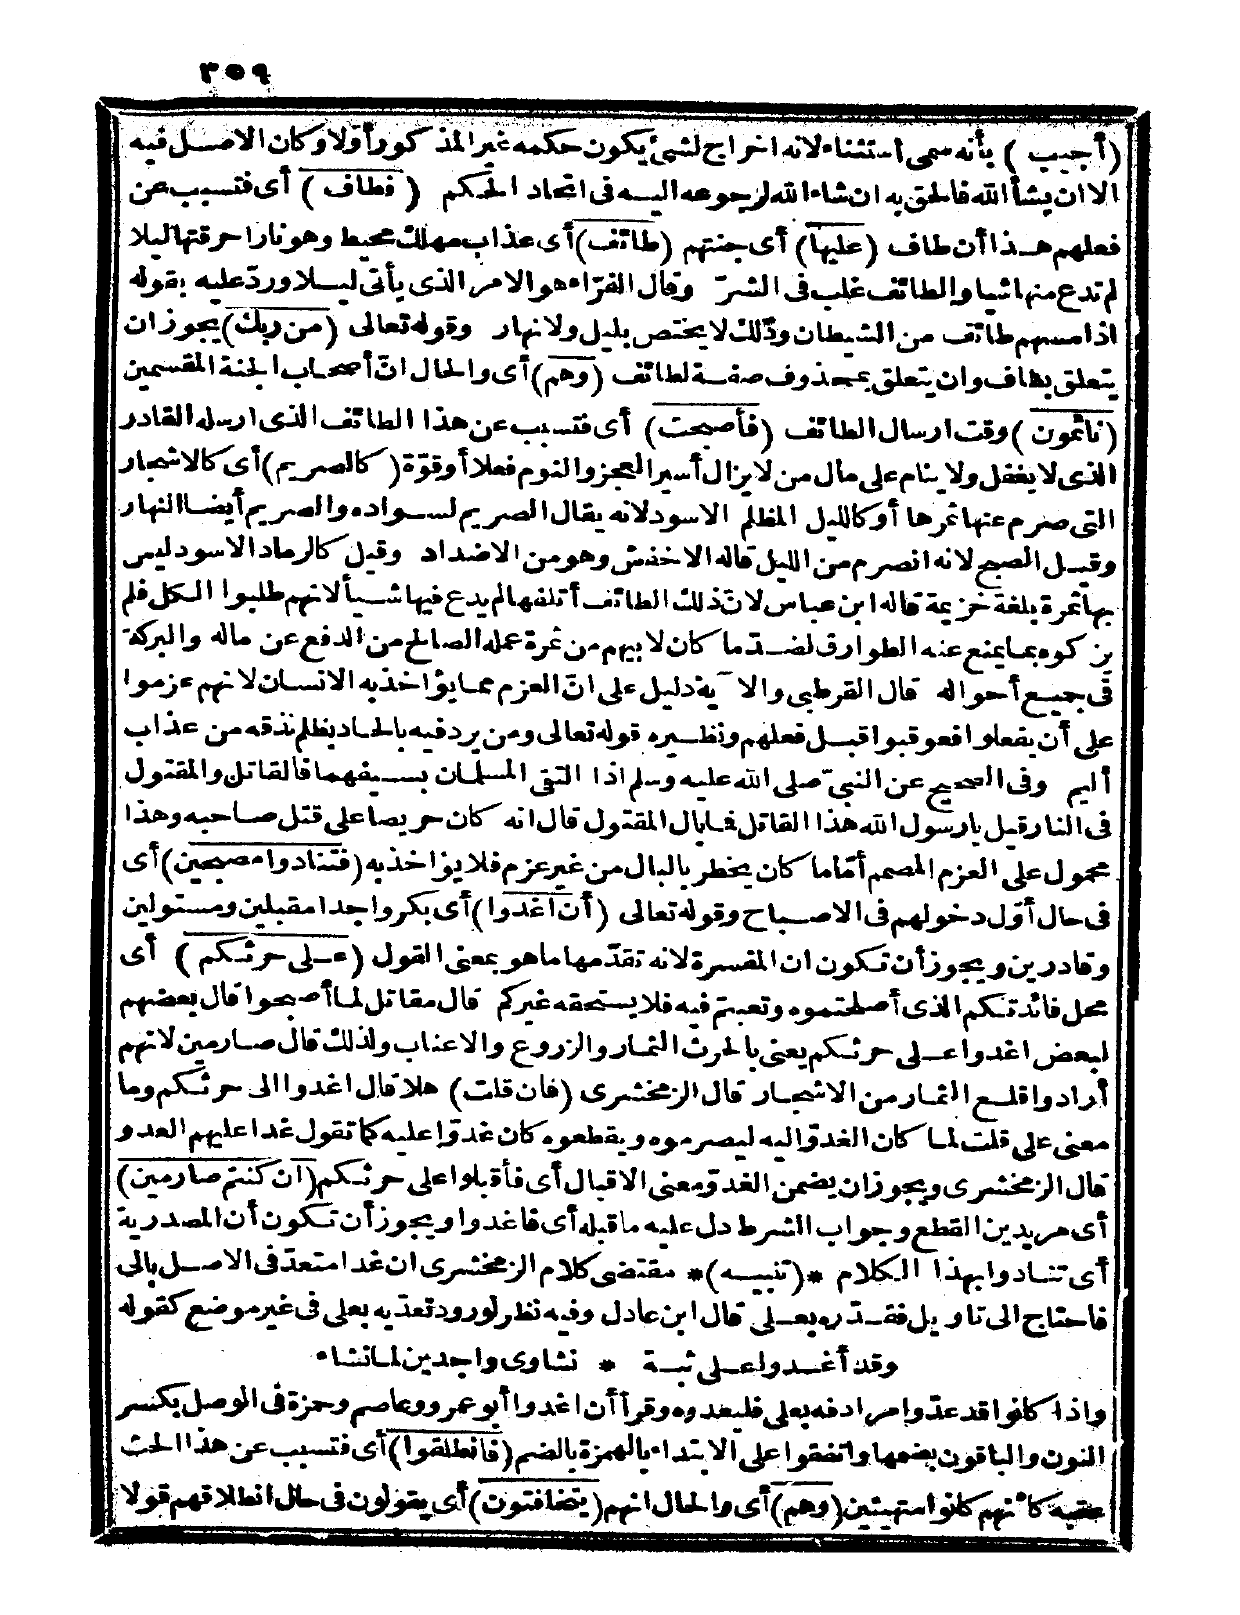 ٣٥٩
(أجيب) بأنه سمى استثناء لانه اخراج لشئ يكون حكمه غير المذكور أوّلا وكان الاصل فيه
الا ان يشأ الله فالحق به ان شاء الله لرجوعه اليه فى اتحاد الحكم (فطاف) أى فتسبب عن
فعلهم هذا أن طاف (عليها) أى جنتهم (طائف) أى عذاب مهلك محيط وهو نارا حرقتها ليلا
لم تدع منها شيا والطائف غلب فى الشرّ وقال الفرّاء هو الامر الذى يأتى ليلا وردّ عليه بقوله
اذا مسهم طائف من الشيطان وذلك لا يختص بليل ولا نهار وقوله تعالى (من ربك) يجوز ان
يتعلق بطاف وان يتعلق بمحذوف صفة لطائف (وهم) أى والحال انّ أصحاب الجنة المقسمين
(نائمون) وقت ارسال الطائف (فأصبحت) أى فتسبب عن هذا الطائف الذى ارسله القادر
الذى لا يغفل ولا ينام على مال من لا يزال أسير العجز والنوم فعلا أو قوّة (كالصريم) أى كالاشجار
التى صرم عنها ثمرها أو كالليل المظلم الاسود لانه يقال الصريم لسواده والصريم أيضا النهار
وقيل الصبح لانه انصرم من الليل قاله الاخفش وهو من الاضداد وقيل كالرماد الاسود ليس
بها ثمرة بلغة خزيمة قاله ابن عباس لانّ ذلك الطائف أتلفها لم يدع فيها شيأ لانهم طلبوا الكل فلم
يزكوه بما يمنع عنه الطوارق لضدّ ما كان لابيهم من ثمرة عمله الصالح من الدفع عن ماله والبركة
فى جميع أحواله قال القرطبى والآية دليل على انّ العزم مما يؤاخذ به الانسان لانهم عزموا
على أن يفعلوا فعوقبوا قبل فعلهم ونظيره قوله تعالى ومن يرد فيه بالحاد بظلم نذقه من عذاب
أليم وفى الصحيح عن النبىّ صلى الله عليه وسلم اذا التقى المسلمان بسيفهما فالقاتل والمقتول
فى النار قيل يارسول الله هذا القاتل فما بال المقتول قال انه كان حريصا على قتل صاحبه وهذا
محمول على العزم المصمم أمّا ما كان يخطر بالبال من غير عزم فلا يؤاخذ به (فتنادوا مصبحين) أى
فى حال أوّل دخولهم فى الاصباح وقوله تعالى (أن اغدوا) أى بكروا جدا مقبلين ومستولين
وقادرين ويجوز أن تكون ان المفسرة لانه تقدّمها ما هو بمعنى القول (على حرثكم) أى
محل فائدتكم الذى أصلحتموه وتعبتم فيه فلا يستحقه غيركم قال مقاتل لما أصبحوا قال بعضهم
لبعض اغدوا على حرثكم يعنى بالحرث الثمار والزروع والاعناب ولذلك قال صارمين لانهم
أرادوا قلع الثمار من الاشجار قال الزمخشرى (فان قلت) هلا قال اغدوا الى حرثكم وما
معنى على قلت لما كان الغدوّ اليه ليصرموه ويقطعوه كان غدوّا عليه كما تقول غدا عليهم العدو
قال الزمخشرى ويجوز ان يضمن الغدوّ معنى الاقبال أى فأقبلوا على حرثكم (ان كنتم صارمين)
أى مريدين القطع وجواب الشرط دل عليه ما قبله أى فاغدوا ويجوز أن تكون أن المصدرية
أى تنادوا بهذا الكلام *(تنبيه)* مقتضى كلام الزمخشرى ان غدا متعدّ فى الاصل بالى
فاحتاج الى تاويل فقدّره بعلى قال ابن عادل وفيه نظر لورود تعدّيه بعلى فى غير موضع كقوله
وقد أغدوا على ثبة * نشاوى واجدين لما نشاء
واذا كانوا قد عدّوا مرادفه بعلى فليعدوه وقرأ أن اغدوا أبو عمرو وعاصم وحمزة فى الوصل بكسر
النون والباقون بضمها واتفقوا على الابتداء بالهمزة بالضم (فانطلقوا) أى فتسبب عن هذا الحث
عقبه كأنهم كانوا متهيئين (وهم) أى والحال انهم (يتخافتون) أى يقولون فى حال انطلاقهم قولا